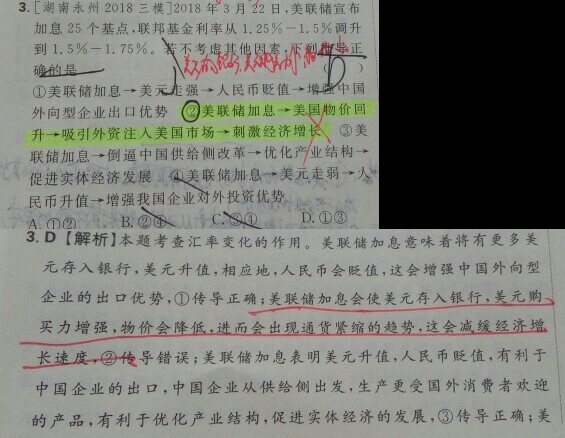 3.[湖南永州2018三模]2018年3月22日,美联储宣布
加息25个基点,联邦基金利率从1.25%-1.5%调升
到1.5%-1.75%。若不考虑其他因素,下列传导正
确的是 )
D
①美联储加息→美元走强→人民币贬值→增强中国
外向型企业出口优势 ②美联储加息→美国物价回
升→吸引外资注人美国市场→刺激经济增长 ③美
联储加息→倒逼中国供给侧改革→优化产业结构→
促进实体经济发展 ④美联储加息→美元走弱→人
民币升值→增强我国企业对外投资优势
A.①② B.②④ C.③④ D.①③
3.D【解析】本题考查汇率变化的作用。美联储加息意味着将有更多美
元存入银行,美元升值,相应地,人民币会贬值,这会增强中国外向型
企业的出口优势,①传导正确;美联储加息会使美元存入银行,美元购
买力增强,物价会降低,进而会出现通货紧缩的趋势,这会减缓经济增
长速度,②传导错误;美联储加息表明美元升值,人民币贬值,有利于
中国企业的出口,中国企业从供给侧出发,生产更受国外消费者欢迎
的产品,有利于优化产业结构,促进实体经济的发展,③传导正确;美